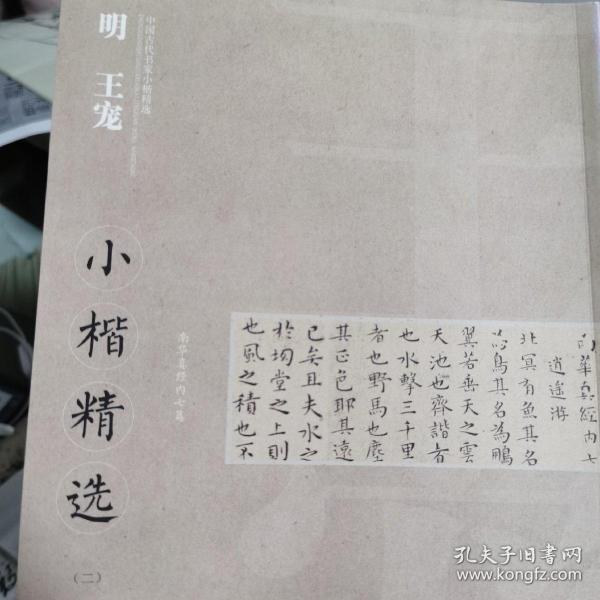 中国古代书家小楷精选
明 王宠
小楷精选
南华真经内七篇
(二)
南華真經内七
逍遙游
北冥有魚其名
為鳥其名為鵬
翼若垂天之雲
天池也齊諧者
也水擊三千里
者也野馬也塵
其正色耶其遠
已矣且夫水之
於坳堂之上則
也風之積也不
孔夫子旧书网
www.kongfz.com